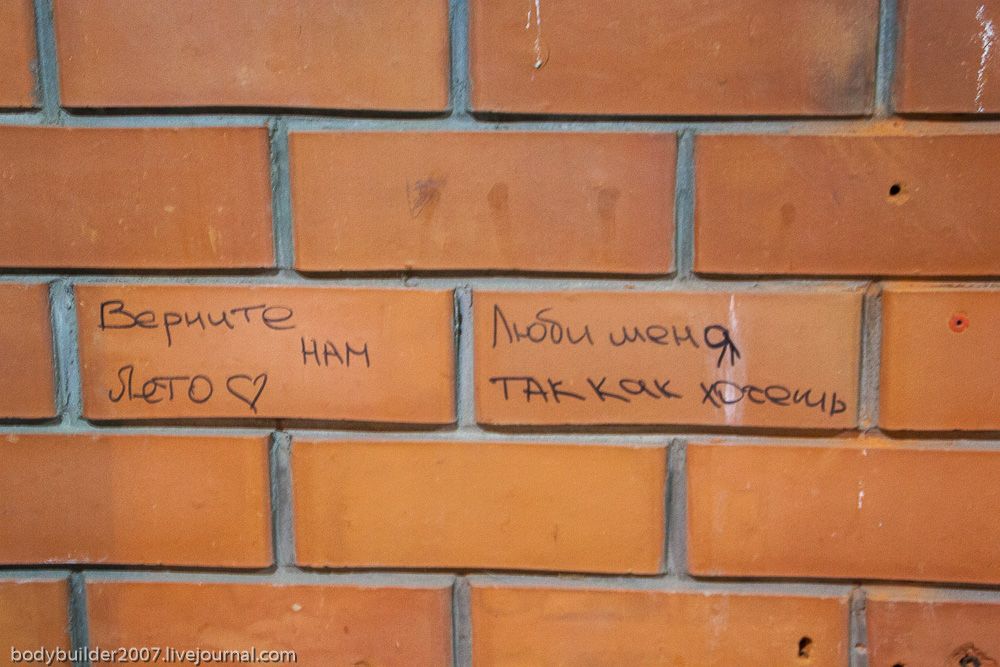 Верните
нам
Лето ♡
Люби меня
так как хочешь
bodybuilder2007.livejournal.com